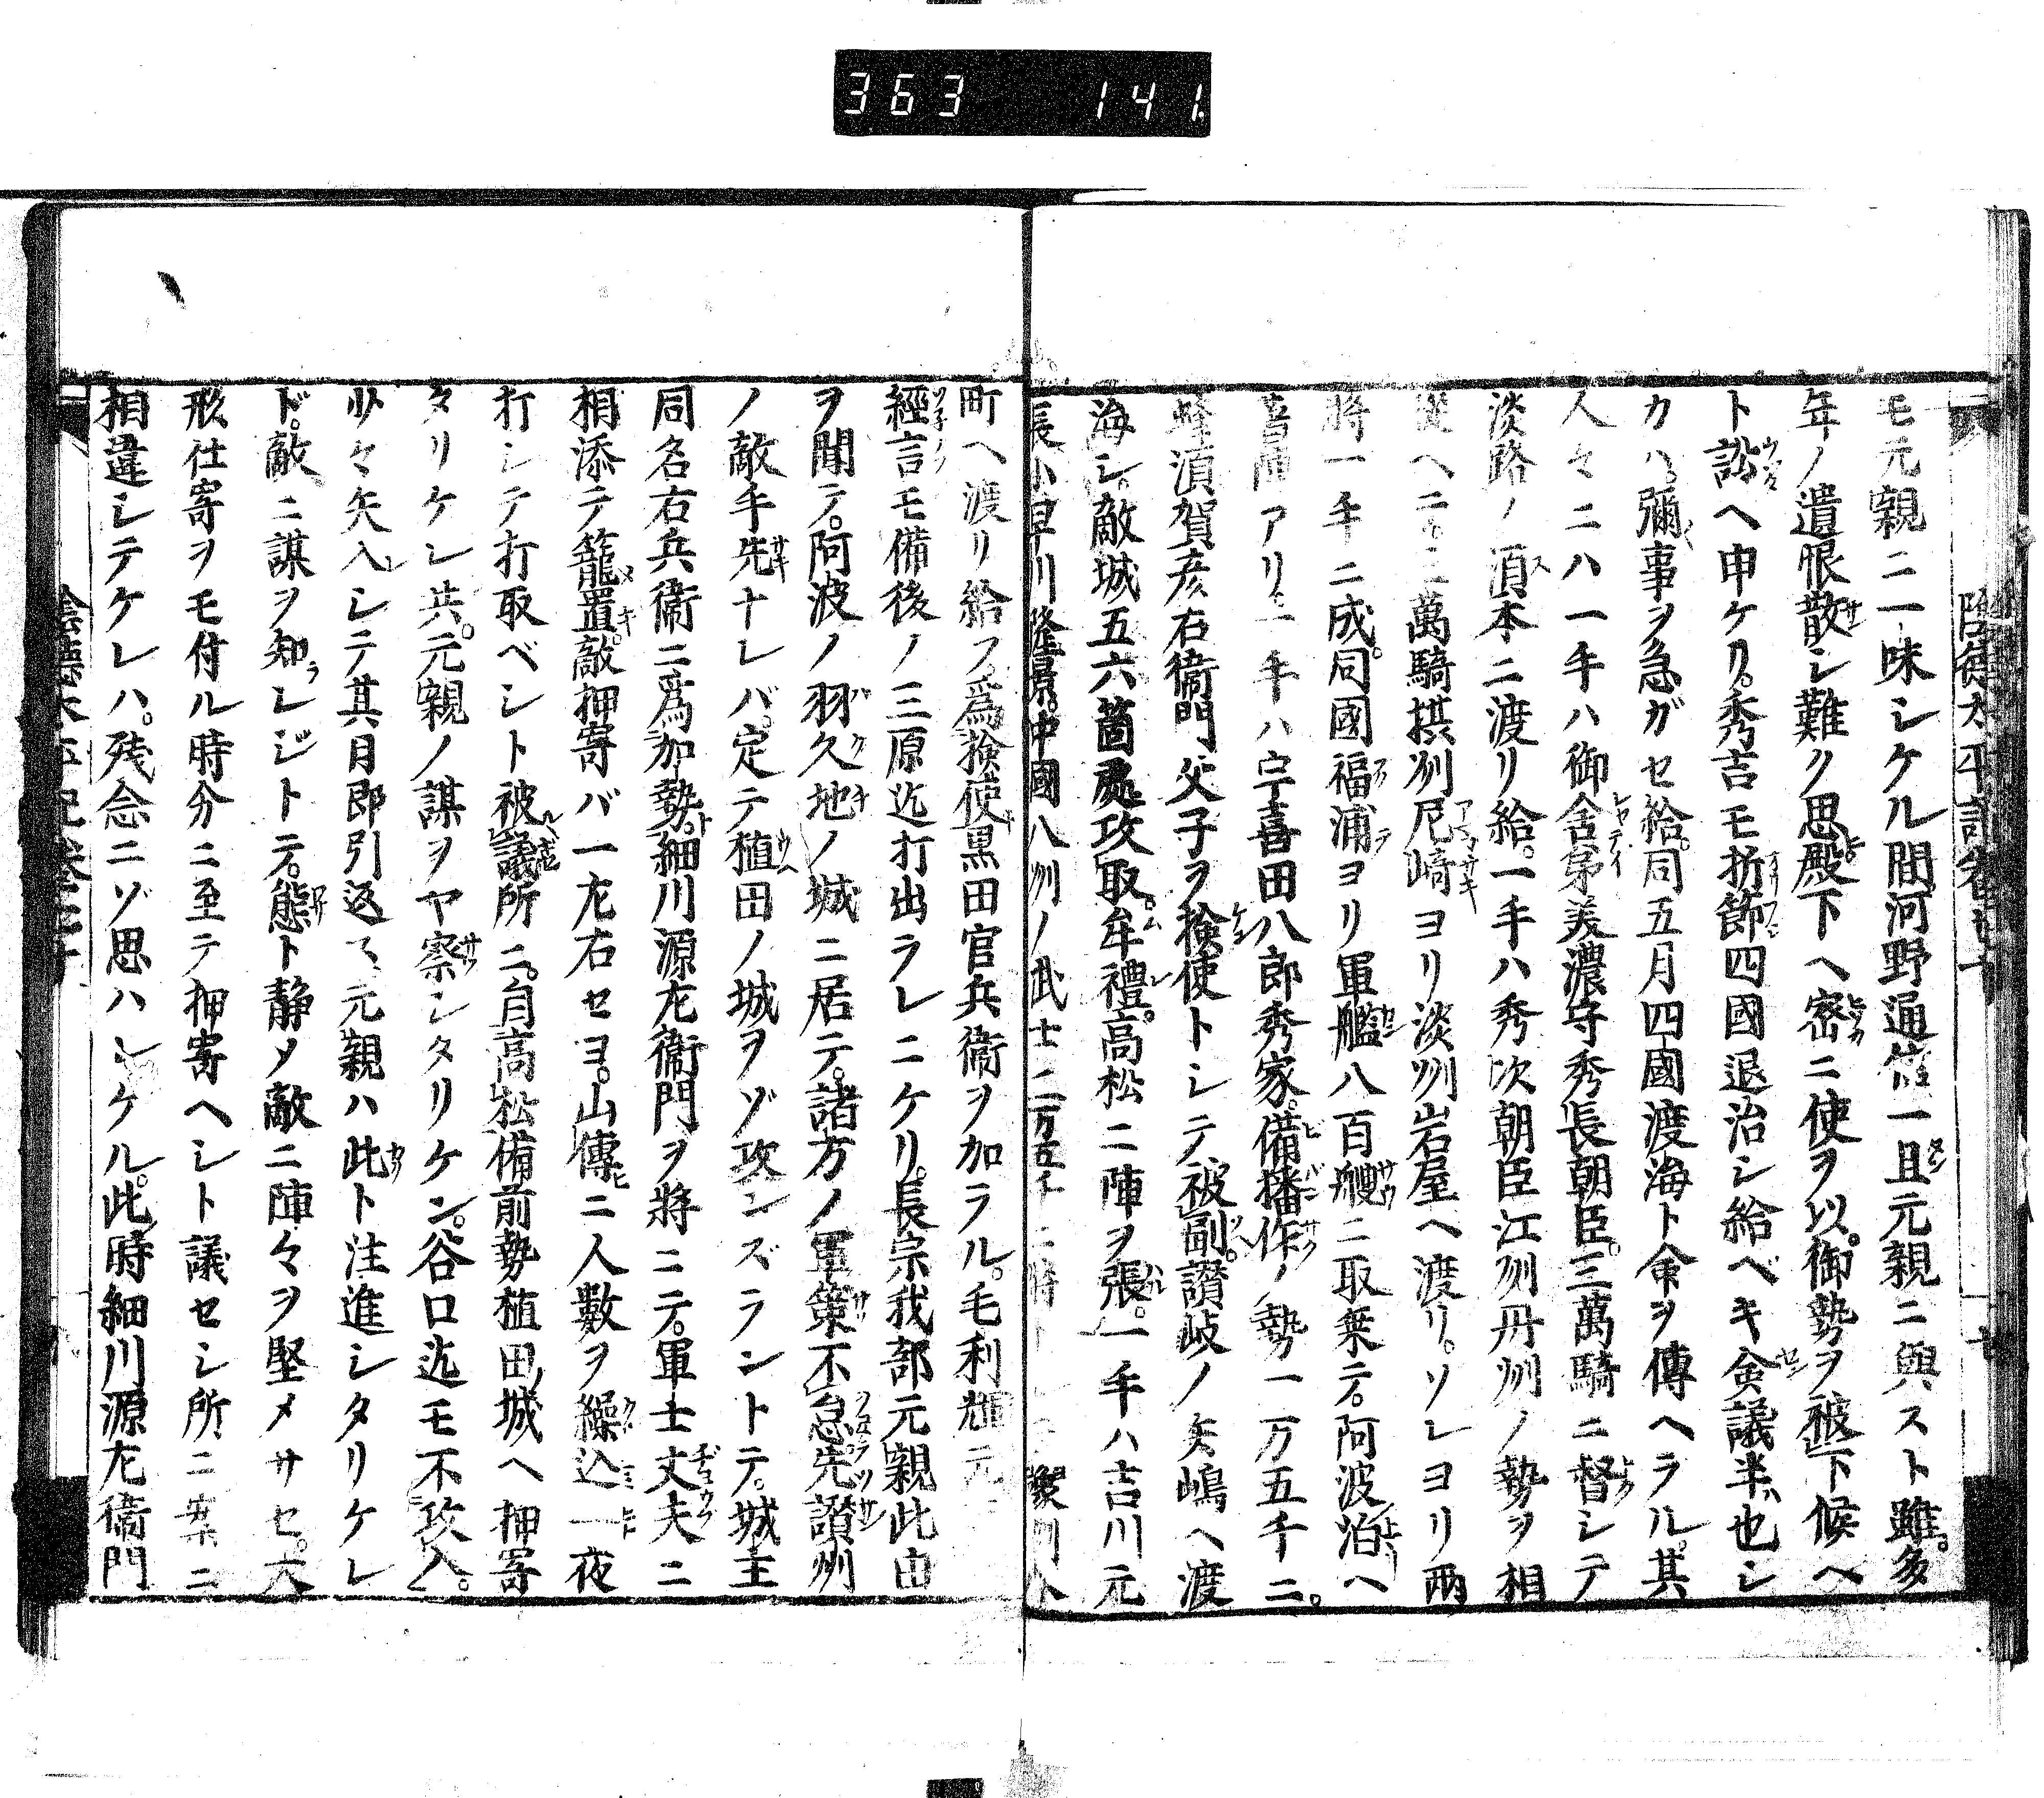 363 141
モ元親ニ一味シケル間河野通信一旦元親ニ與スト雖多
年ノ遺恨散シ難ク思殿下ヘ密ニ使ヲ以御勢ヲ被下候ヘ
ト訟ヘ申ケリ。秀吉モ折節四國退治シ給ベキ僉議半也シ
カハ。彌事ヲ急ガセ給。同五月四國渡海ト命ヲ傳ヘラル。其
人々ニハ一手ハ御舎弟美濃守秀長朝臣。三萬騎ニ督シテ
淡路ノ須本ニ渡リ給。一手ハ秀次朝臣江州丹州ノ勢ヲ相
ヘニ三萬騎摂州尼﨑ヨリ淡州岩屋ヘ渡リ。ソレヨリ兩
將一手ニ成。同國福浦ヨリ軍艦八百艘ニ取乗テ。阿波泊ヘ
アリ。一手ハ宇喜田八郎秀家。備播作ノ勢一万五千ニ。
蜂須賀彦右衛門父子ヲ検使トシテ被副。讃岐ノ矢嶋ヘ渡
海シ。敵城五六箇處攻取。牟禮。高松ニ陣ヲ張。一手ハ吉川元
長小早川隆景。中國八州ノ武士二万五千
町ヘ渡リ給フ。為検使黒田官兵衛ヲ加ラル。毛利輝元
經言モ備後ノ三原迄打出ラレニケリ。長宗我部元親此由
ヲ聞テ。阿波ノ羽久地ノ城ニ居テ。諸方ノ軍策不怠。先讃州
ノ敵手先ナレバ。定テ植田ノ城ヲゾ攻ンズラントテ。城主
同名右兵衛ニ爲加勢。細川源左衛門ヲ將ニテ。軍士丈夫ニ
相添テ籠置。敵押寄バ一左右セヨ。山傳ニ人數ヲ繰込一夜
打シテ打取ベシト被議所ニ。自高松備前勢植田ノ城ヘ押寄
タリケレ共。元親ノ謀ヲヤ察シタリケン。谷口迄モ不攻入。
少々矢入シテ其日即引返ス。元親ハ此ト注進シタリケレ
ド。敵ニ謀ヲ知レジトテ。態ト静メ敵ニ陣々ヲ堅メサセ。大
形仕寄ヲモ付ル時分ニ至テ押寄ヘシト議セシ所ニ案ニ
相違シテケレハ。残念ニゾ思ハレケル。此時細川源左衛門